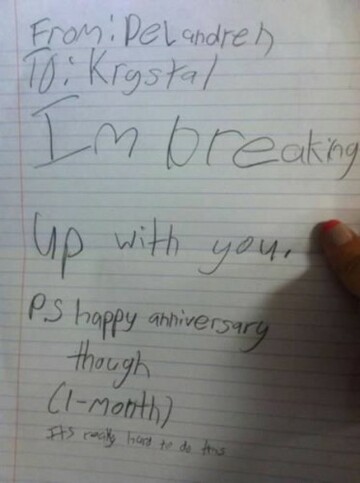 From: DeLandreh
To: Krystal
Im breaking
up with you.
P.S happy anniversary
though
(1-month)
Its really hard to do this